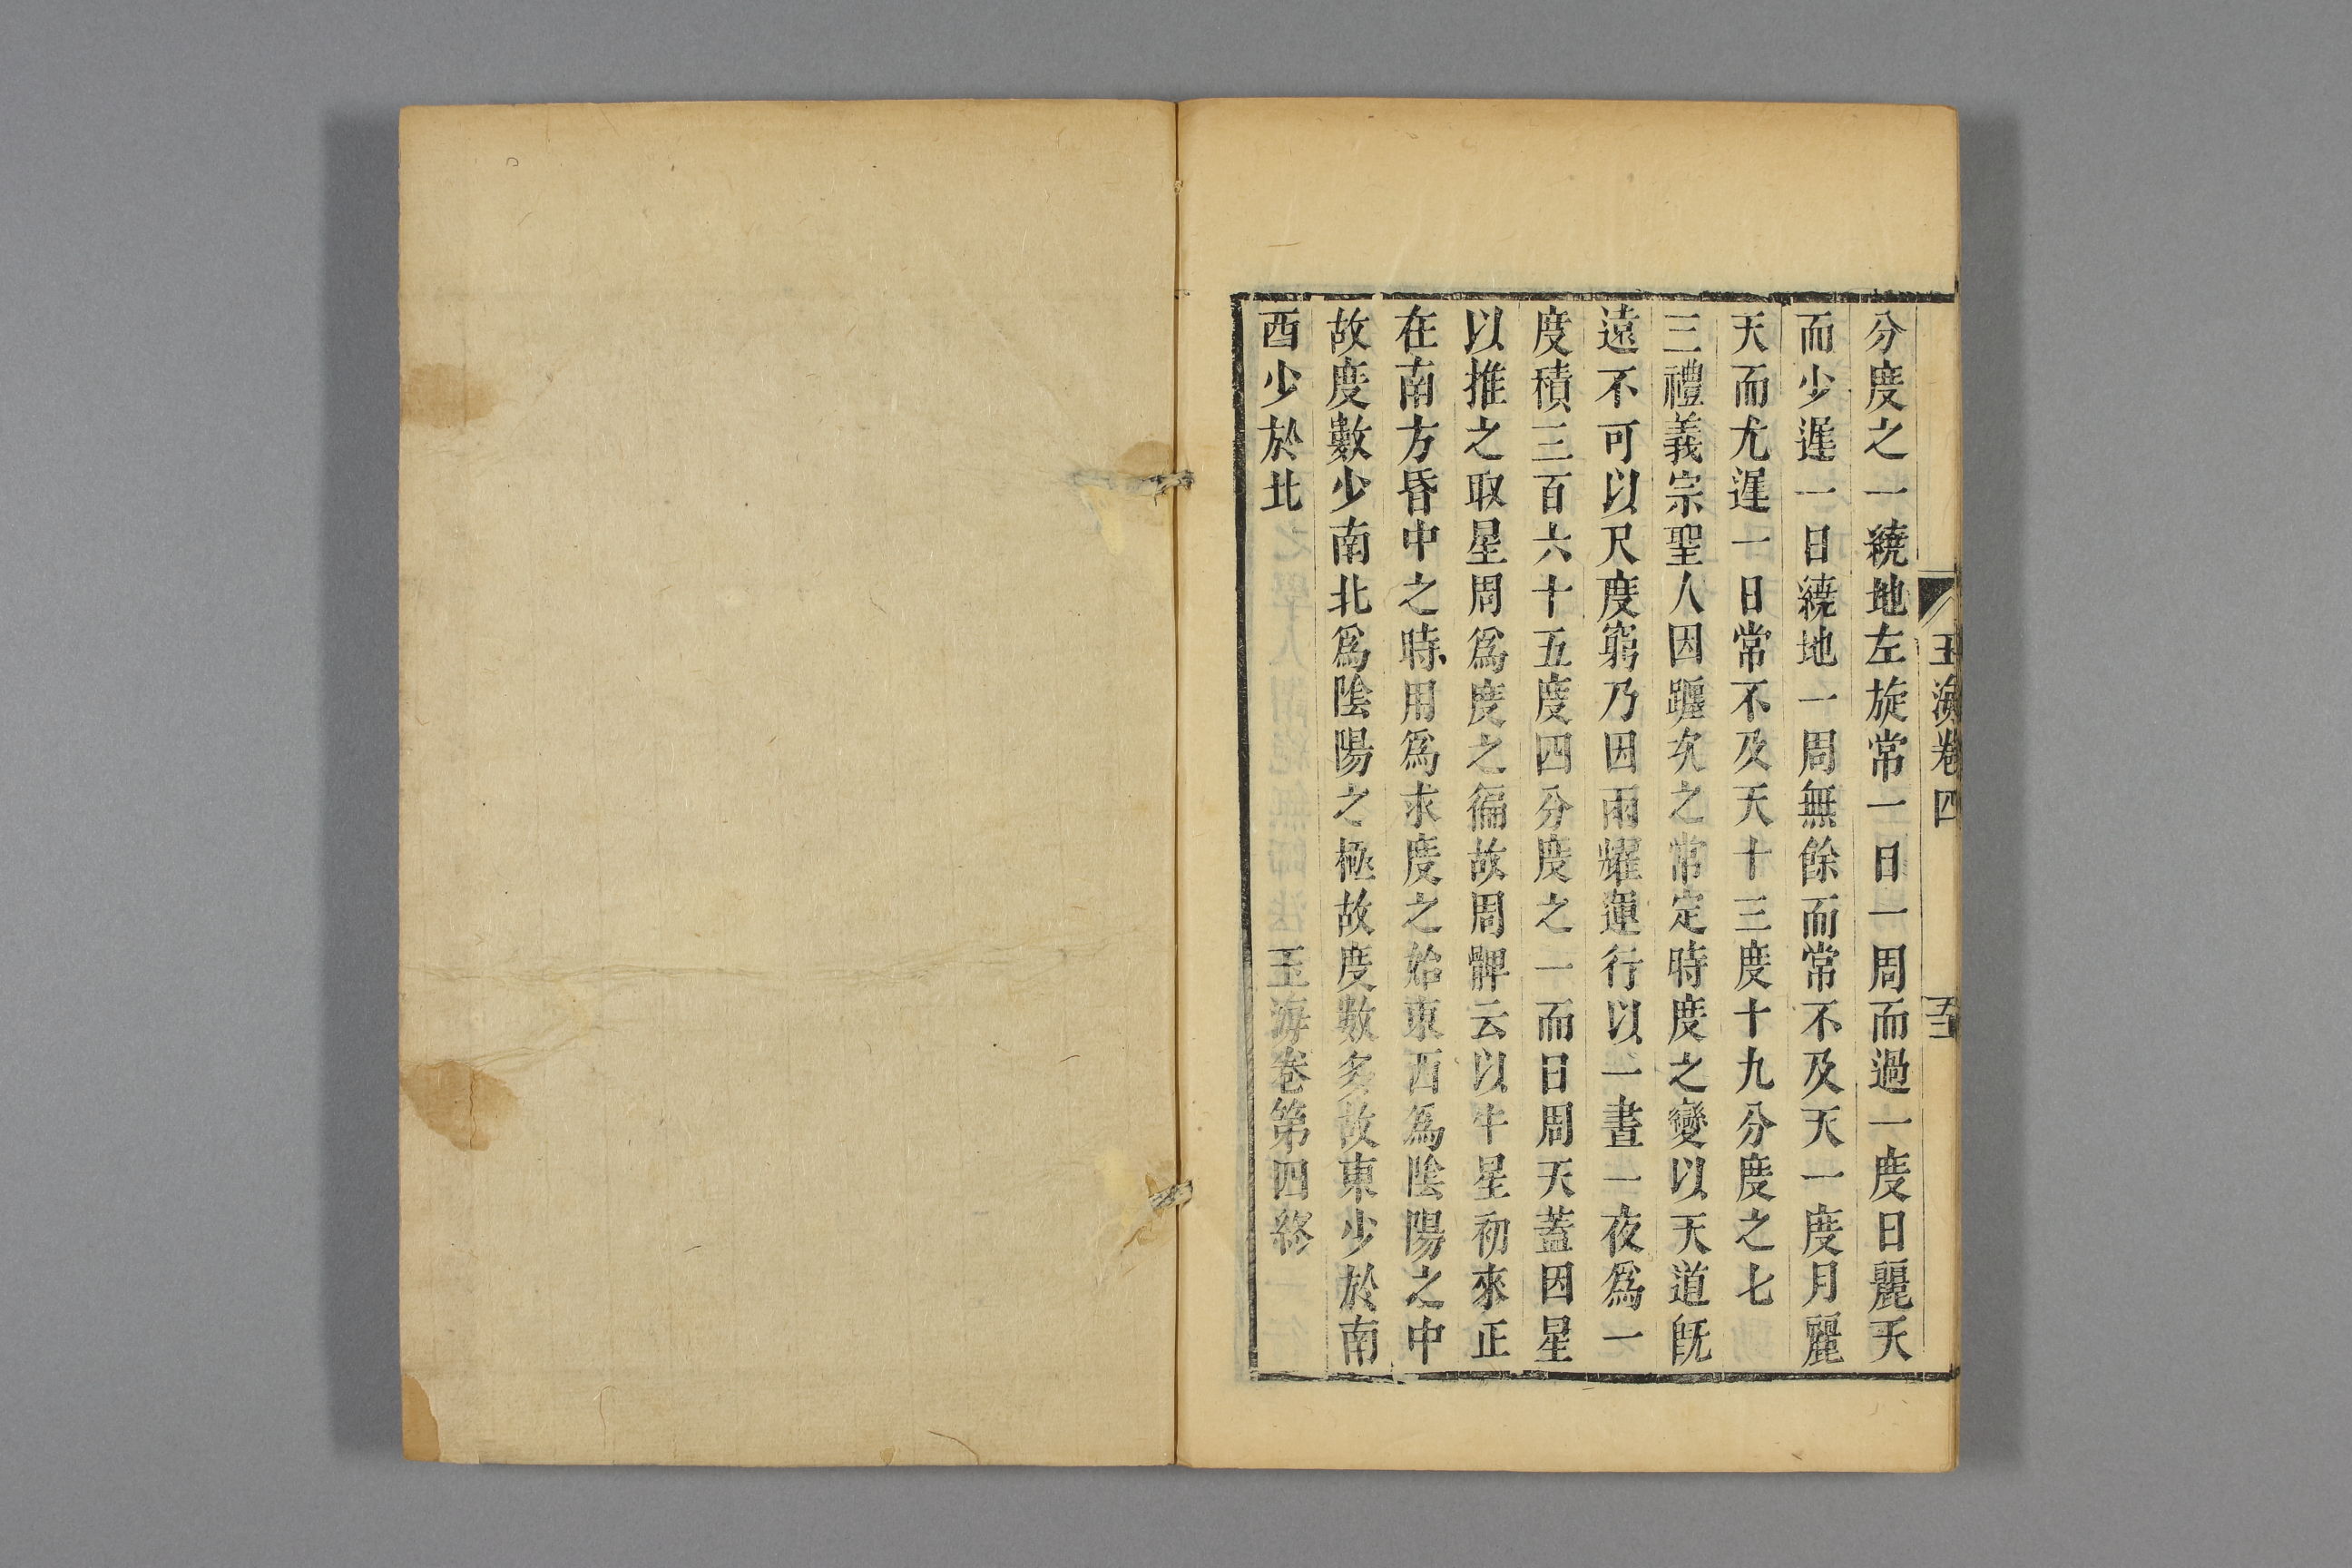 玉海卷四
五十
分度之一繞地左旋常一日一周而過一度日麗天
而少遲一日繞地一周無餘而常不及天一度月麗
天而尤遲一日常不及天十三度十九分度之七
三禮義宗聖人因躔次之常定時度之變以天道既
遠不可以尺度窮乃因兩耀運行以一晝一夜爲一
度積三百六十五度四分度之一而日周天蓋因星
以推之取星周爲度之徧故周髀云以牛星初來正
在南方昏中之時用爲求度之始東西爲陰陽之中
故度數少南北爲陰陽之極故度數多故東少於南
酉少於北
玉海卷第四終